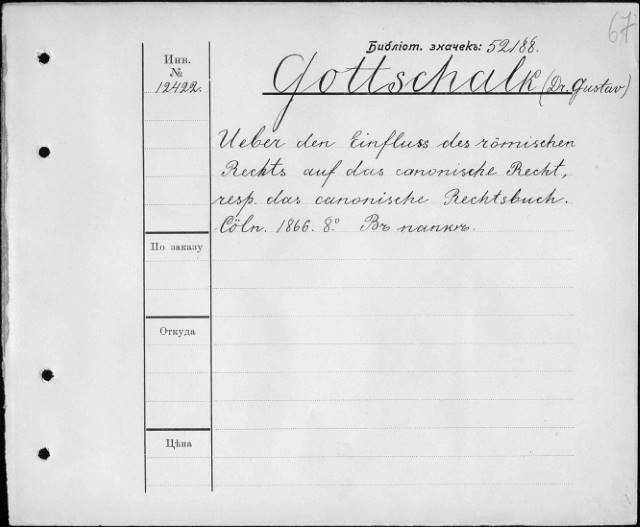 67
Библіот. значекъ: 52188.
Инв.
№
12422.
Gottschalk (Dr. Gustav)
Ueber den Einfluss des römischen
Rechts auf das canonische Recht,
resp. das canonische Rechtsbuch.
Cöln. 1866. 8.º Въ папкѣ.
По заказу
Откуда
Цѣна